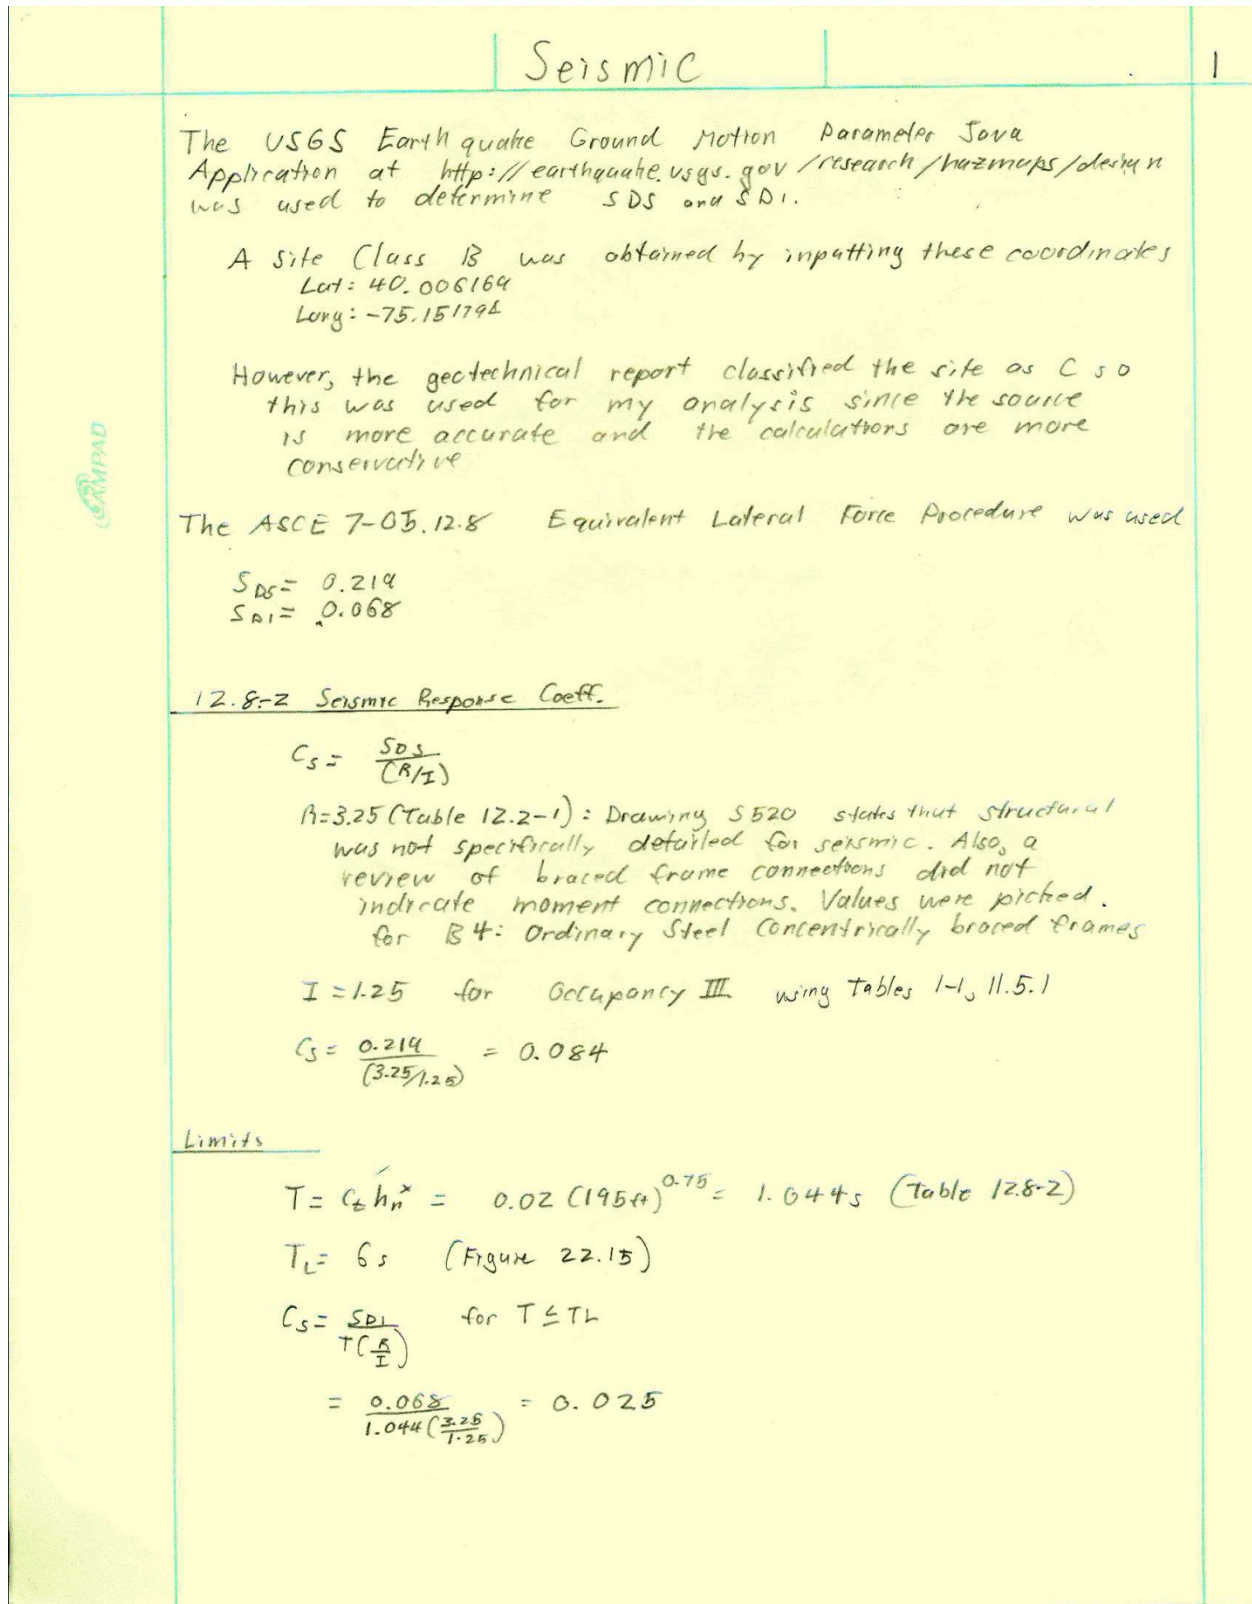 Seismic
1
The USGS Earthquake Ground Motion Parameter Java
Application at http://earthquake.usgs.gov/research/hazmaps/design
was used to determine SDS and SD1.
A Site Class B was obtained by inputting these coordinates
Lat: 40.006169
Long: -75.151794
However, the geotechnical report classified the site as C so
this was used for my analysis since the source
is more accurate and the calculations are more
conservative
CAMPAD
The ASCE 7-05.12.8 Equivalent Lateral Force Procedure was used
SDS = 0.219
SD1 = 0.068
12.8-2 Seismic Response Coeff.
Cs = SDS/(R/I)
R=3.25 (Table 12.2-1): Drawing S520 states that structural
was not specifically detailed for seismic. Also, a
review of braced frame connections did not
indicate moment connections. Values were picked.
for B4: Ordinary Steel Concentrically braced frames
I = 1.25 for Occupancy III using Tables 1-1, 11.5.1
Cs = 0.219/(3.25/1.25) = 0.084
Limits
T = Ct hn^x = 0.02 (195ft)^0.75 = 1.044s (Table 12.8-2)
TL = 6s (Figure 22.15)
Cs = SD1/T(R/I) for T ≤ TL
= 0.068/1.044(3.25/1.25) = 0.025